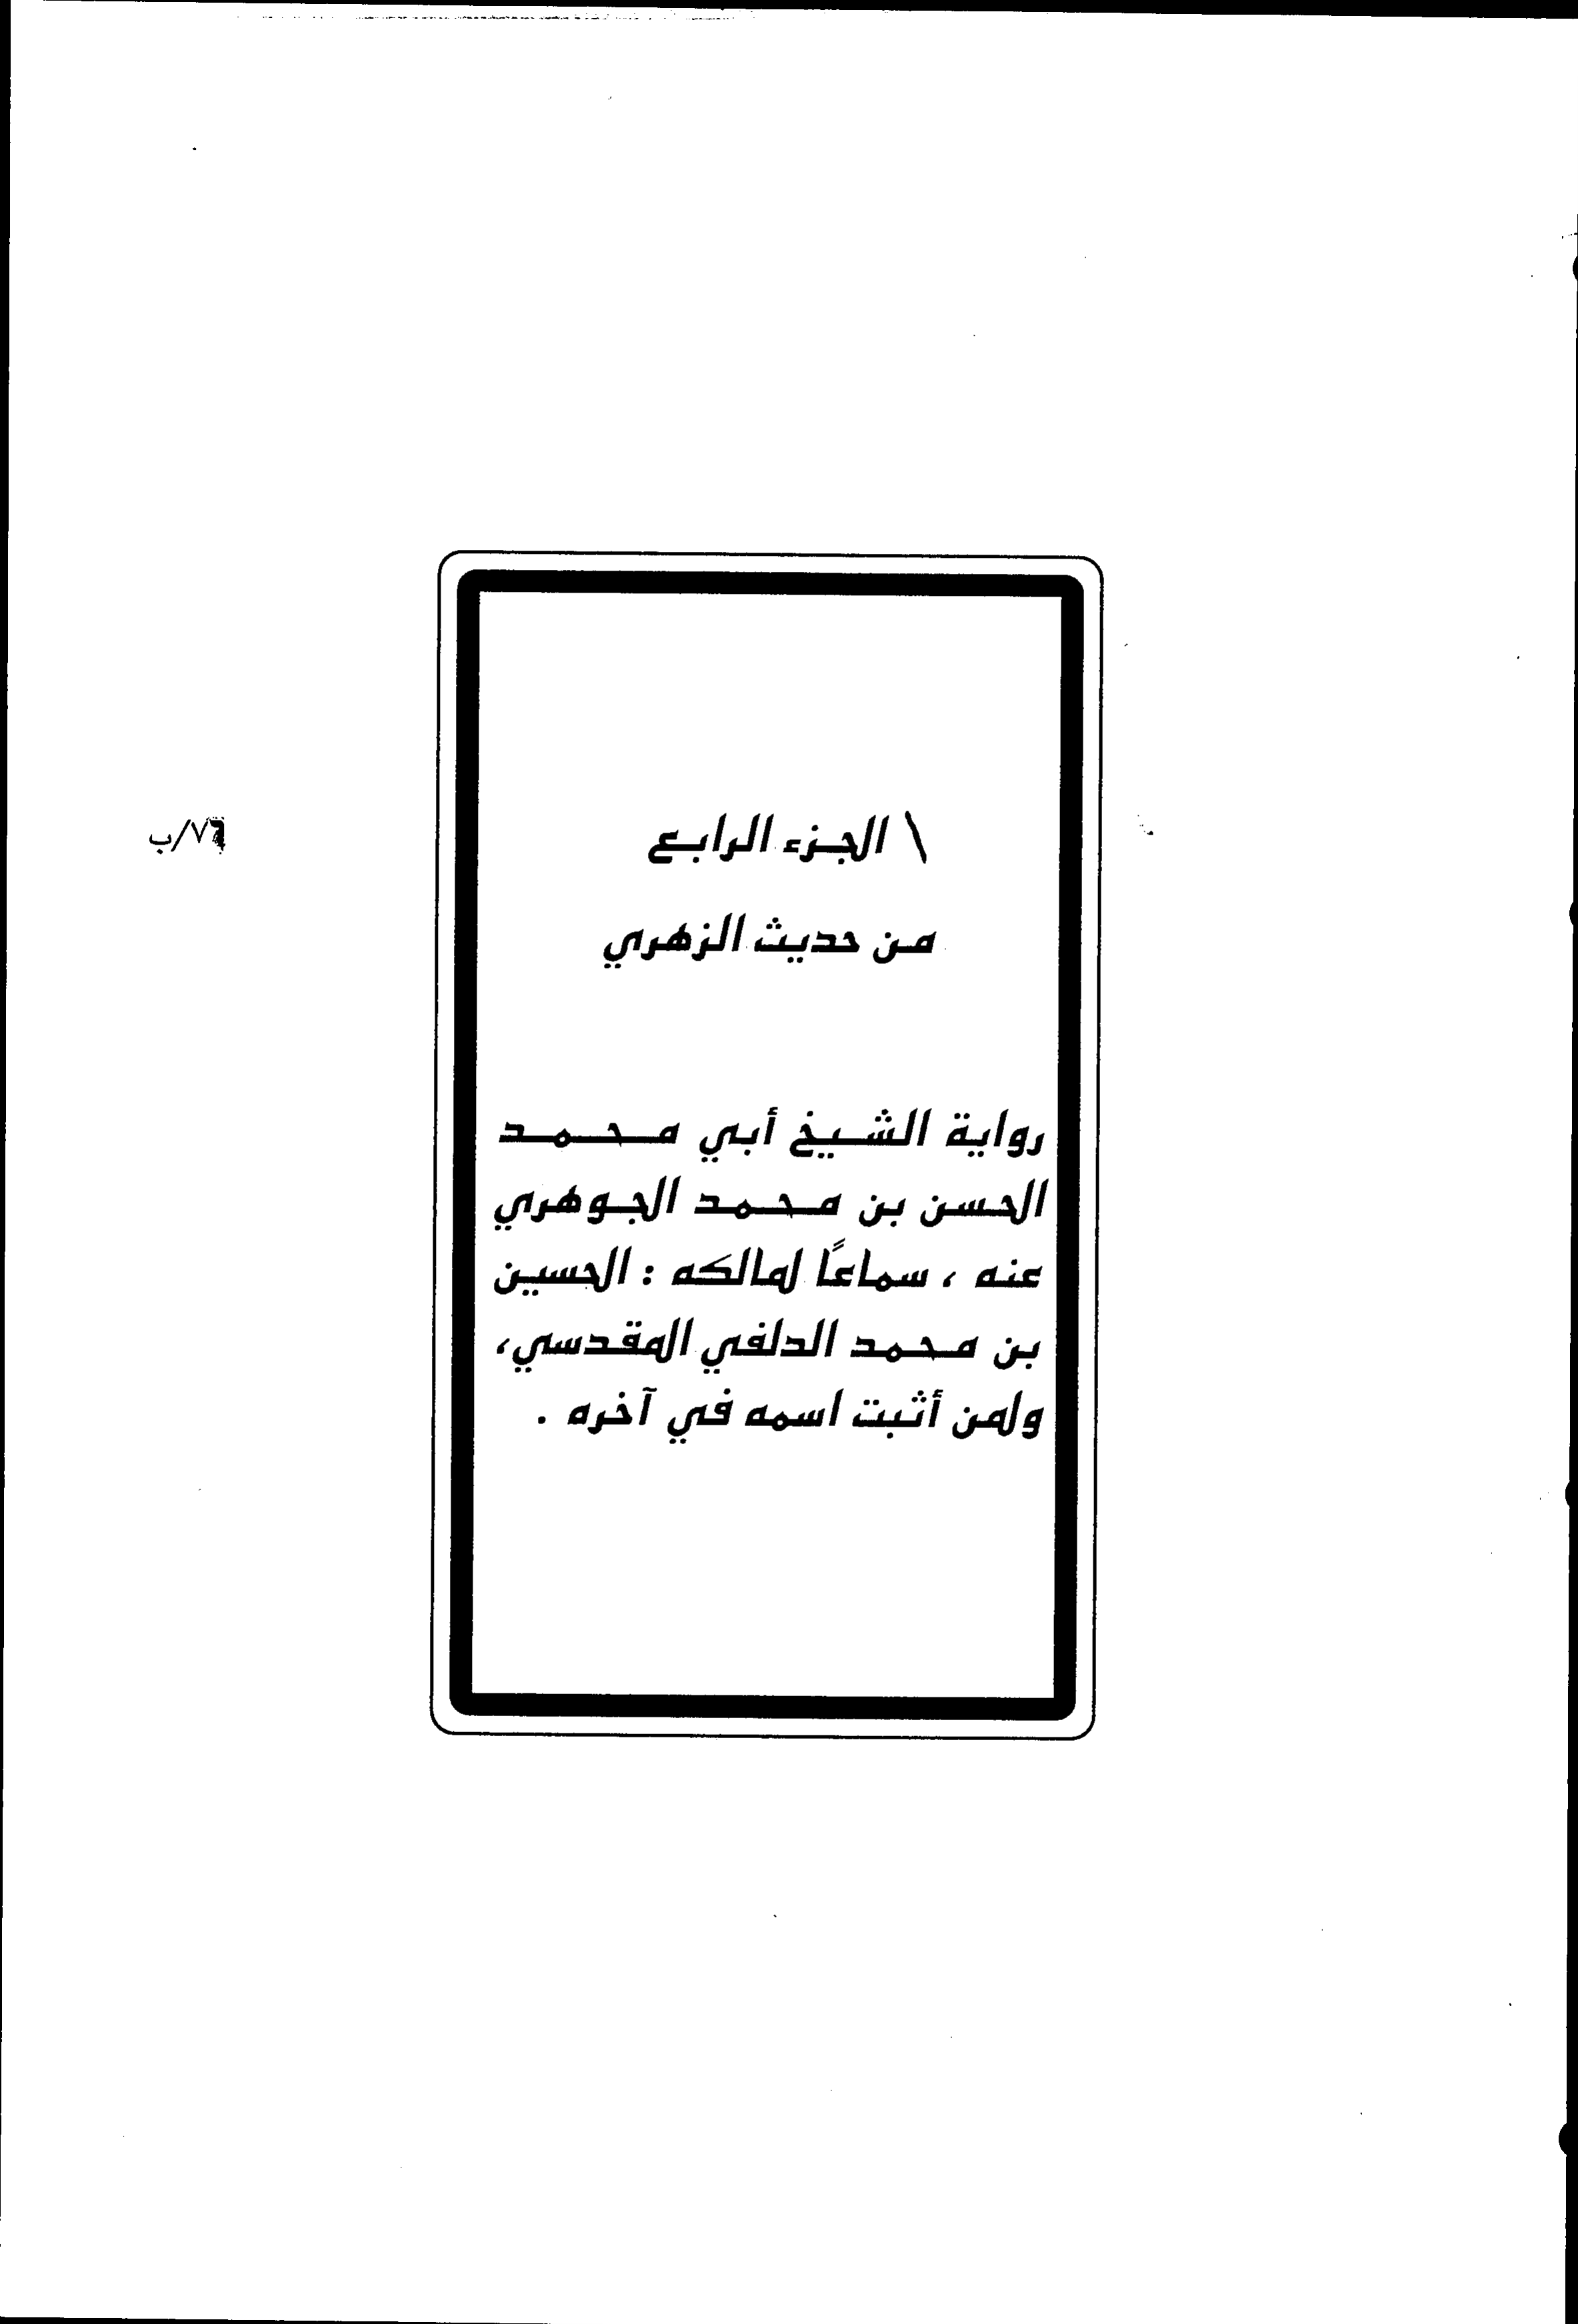 \ الجزء الرابع
من حديث الزهري
رواية الشيخ أبي محمد
الحسن بن محمد الجوهري
عنه ، سماعًا لمالكه : الحسين
بن محمد الدلفي المقدسي،
ولمن أثبت اسمه في آخره .